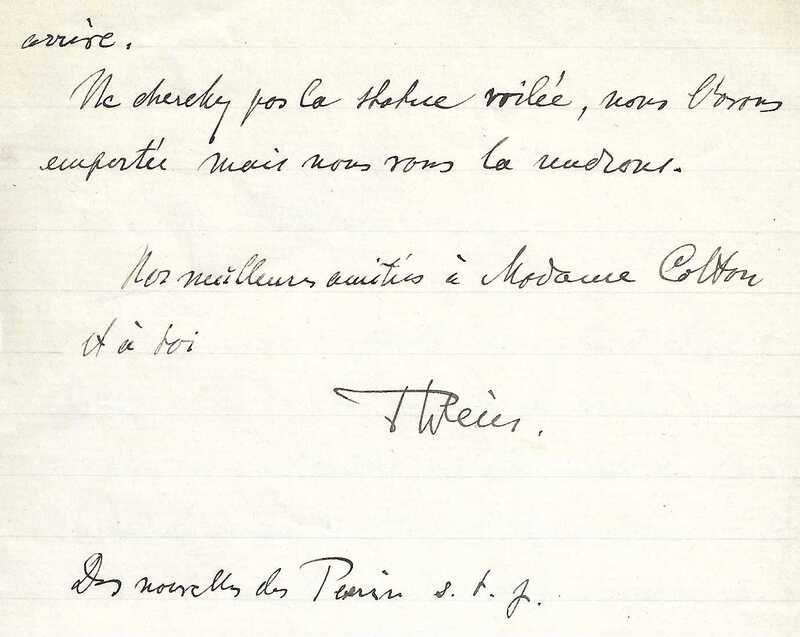 arrive.
Ne cherchez pas la statue voilée, nous l'avons
emportée mais nous vous la rendrons.
Nos meilleures amitiés à Madame Cotton
et à toi
P Weiss.
Des nouvelles des Perrin s. t. p.